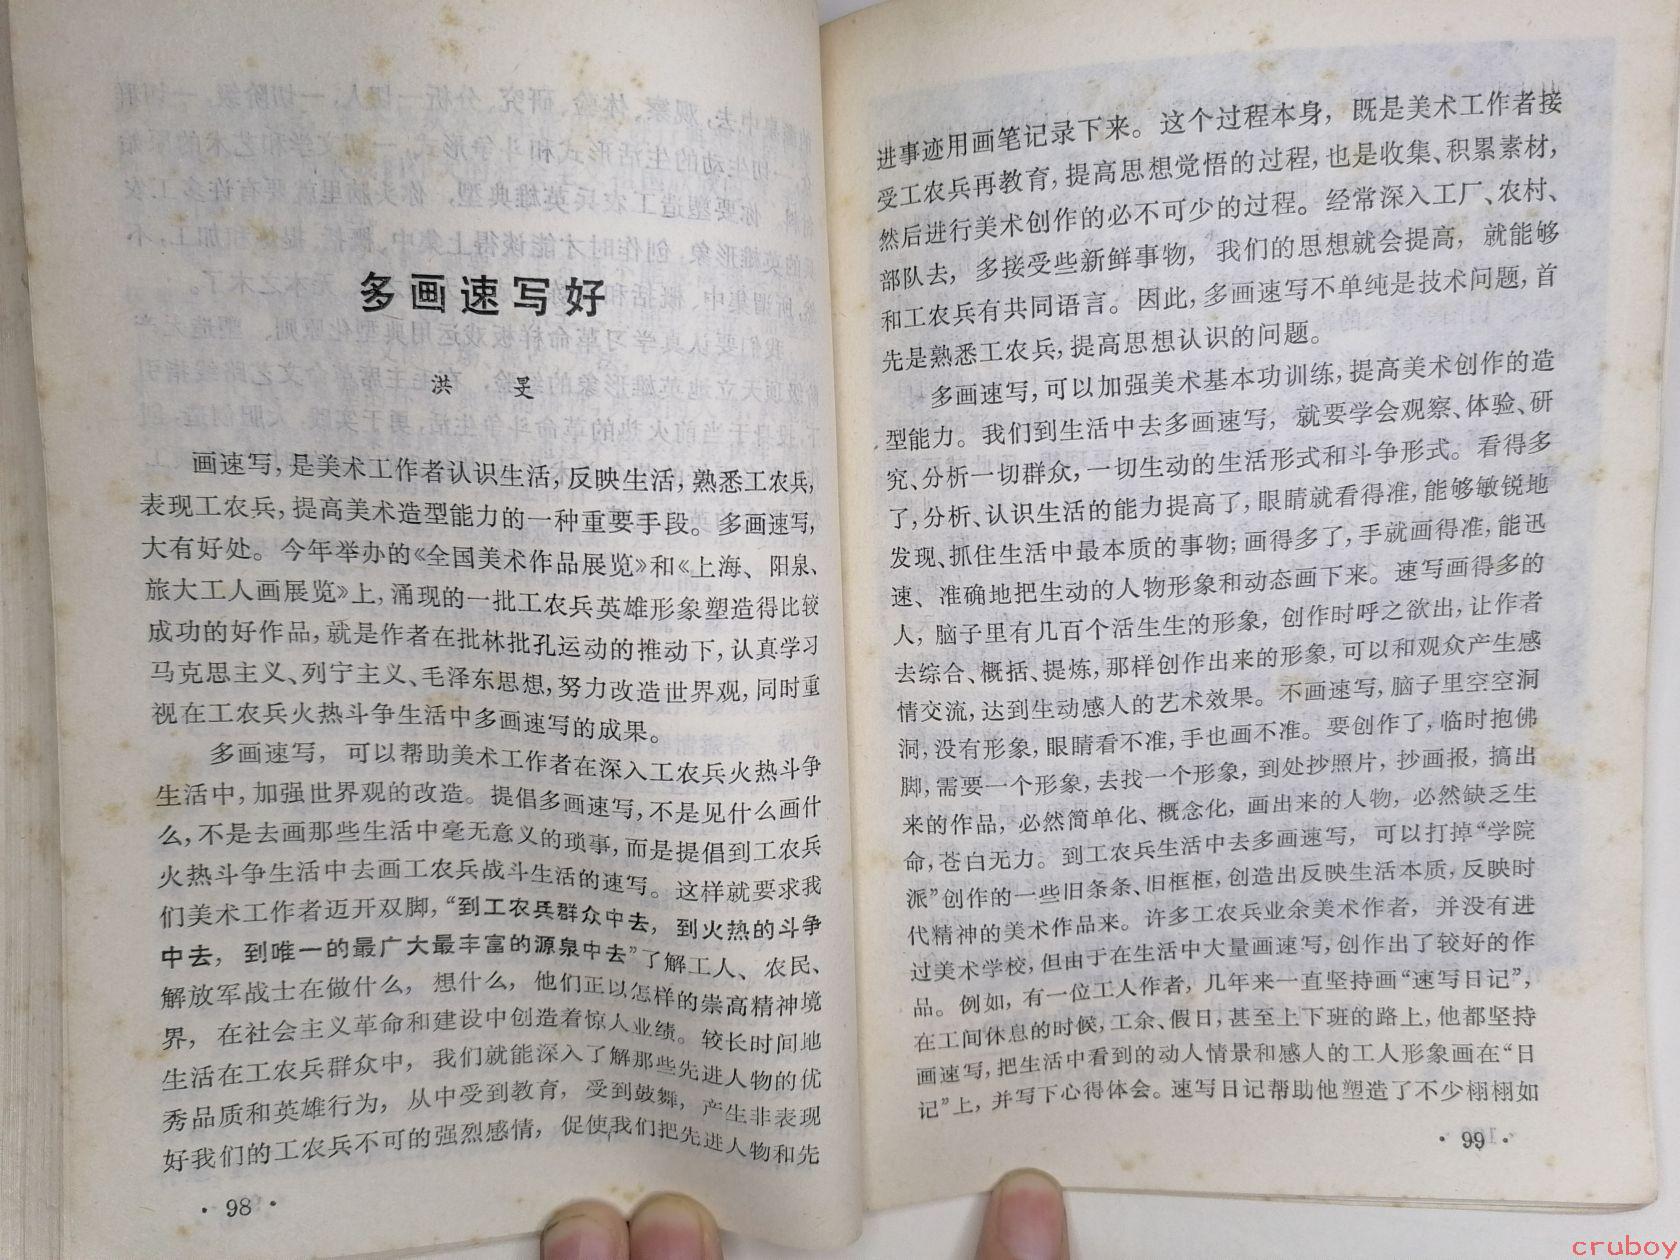 多画速写好
洪 旻
画速写，是美术工作者认识生活，反映生活，熟悉工农兵，
表现工农兵，提高美术造型能力的一种重要手段。多画速写，
大有好处。今年举办的《全国美术作品展览》和《上海、阳泉、
旅大工人画展览》上，涌现的一批工农兵英雄形象塑造得比较
成功的好作品，就是作者在批林批孔运动的推动下，认真学习
马克思主义、列宁主义、毛泽东思想，努力改造世界观，同时重
视在工农兵火热斗争生活中多画速写的成果。
多画速写，可以帮助美术工作者在深入工农兵火热斗争
生活中，加强世界观的改造。提倡多画速写，不是见什么画什
么，不是去画那些生活中毫无意义的琐事，而是提倡到工农兵
火热斗争生活中去画工农兵战斗生活的速写。这样就要求我
们美术工作者迈开双脚，“到工农兵群众中去，到火热的斗争
中去，到唯一的最广大最丰富的源泉中去”了解工人、农民、
解放军战士在做什么，想什么，他们正以怎样的崇高精神境
界，在社会主义革命和建设中创造着惊人业绩。较长时间地
生活在工农兵群众中，我们就能深入了解那些先进人物的优
秀品质和英雄行为，从中受到教育，受到鼓舞，产生非表现
好我们的工农兵不可的强烈感情，促使我们把先进人物和先
· 98 ·
进事迹用画笔记录下来。这个过程本身，既是美术工作者接
受工农兵再教育，提高思想觉悟的过程，也是收集、积累素材，
然后进行美术创作的必不可少的过程。经常深入工厂、农村、
部队去，多接受些新鲜事物，我们的思想就会提高，就能够
和工农兵有共同语言。因此，多画速写不单纯是技术问题，首
先是熟悉工农兵，提高思想认识的问题。
多画速写，可以加强美术基本功训练，提高美术创作的造
型能力。我们到生活中去多画速写，就要学会观察、体验、研
究、分析一切群众，一切生动的生活形式和斗争形式。看得多
了，分析、认识生活的能力提高了，眼睛就看得准，能够敏锐地
发现、抓住生活中最本质的事物；画得多了，手就画得准，能迅
速、准确地把生动的人物形象和动态画下来。速写画得多的
人，脑子里有几百个活生生的形象，创作时呼之欲出，让作者
去综合、概括、提炼，那样创作出来的形象，可以和观众产生感
情交流，达到生动感人的艺术效果。不画速写，脑子里空空洞
洞，没有形象，眼睛看不准，手也画不准。要创作了，临时抱佛
脚，需要一个形象，去找一个形象，到处抄照片，抄画报，搞出
来的作品，必然简单化、概念化，画出来的人物，必然缺乏生
命，苍白无力。到工农兵生活中去多画速写，可以打掉“学院
派”创作的一些旧条条、旧框框，创造出反映生活本质，反映时
代精神的美术作品来。许多工农兵业余美术作者，并没有进
过美术学校，但由于在生活中大量画速写，创作出了较好的作
品。例如，有一位工人作者，几年来一直坚持画“速写日记”，
在工间休息的时候，工余、假日，甚至上下班的路上，他都坚持
画速写，把生活中看到的动人情景和感人的工人形象画在“日
记”上，并写下心得体会。速写日记帮助他塑造了不少栩栩如
· 99 ·
cruboy